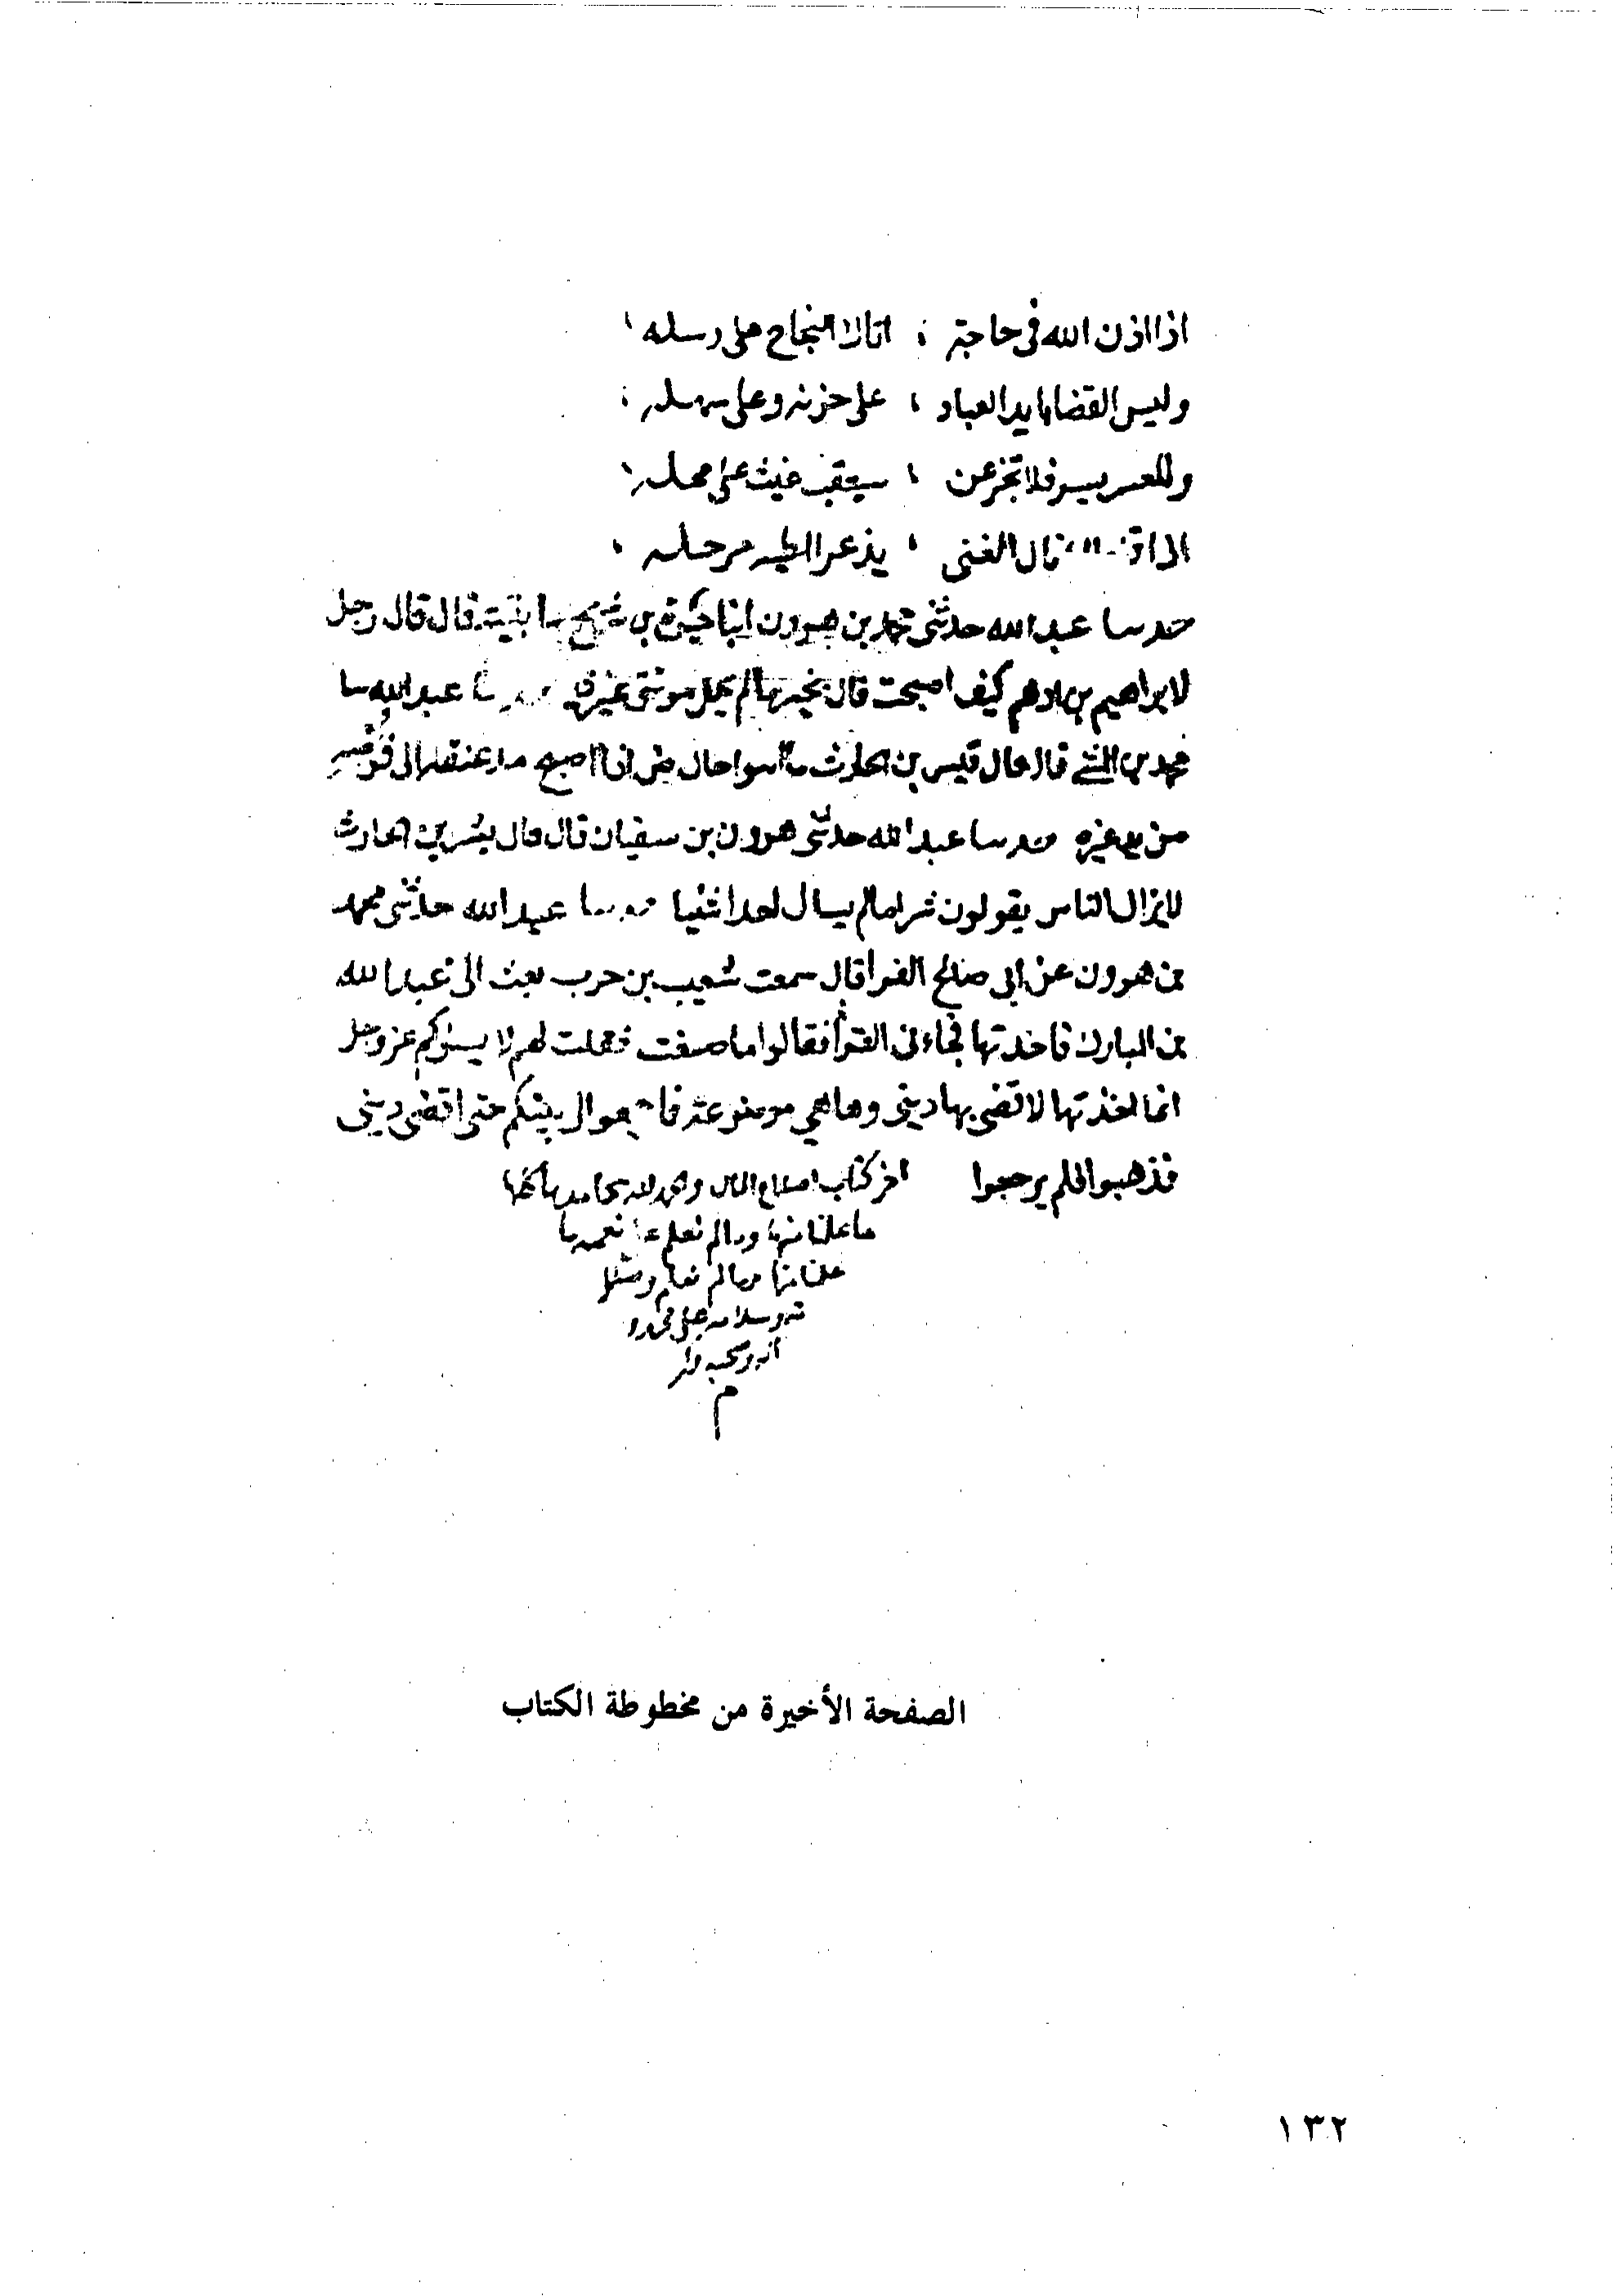 اذا اذن الله في حاجة ؛ اتاك النجاح على رسله
وليس القضا بايد العباد ، على حزنه وعلى سهله
وللعسر يسر فلا تجزعن ، سيعقب غيث على محله
الغنى ، يذعر من رحله
حدسا عبد الله حدثني محمد بن هرون انبا حيوة بن شريح سا بقية قال قال رجل
لابراهيم بن ادهم كيف اصبحت قال بخير ما لم يحمل مونتي غيري عبد الله سا
محمد بن المثنى قال قال قيس بن الحارث حال
من غيره حدسا عبد الله حدثني هرون بن سفيان قال قال بشر بن الحارث
لايزال الناس يقولون شر ما لم يسال احدا شيا حدسا عبد الله حدثني محمد
بن هرون عن ابي صالح الفرا قال سمعت شعيب بن حرب بعث الى عبد الله
بن المبارك فاخذتها فجاءني القرا فقالوا ما صنعت فقلت لهم لا يسوكم عز وجل
انما اخذتها لاقضي بها ديني وها هي موضوعة الي حتى اقضي ديني
فذهبوا فلم يرجعوا اخر كتاب اصلاح المال والحمد لله بمحامده كلها
ما علمنا منها وما لم نعلم
علمنا منها وما لم نعلم
وسلامه على محمد و
اله وصحبه
م
الصفحة الأخيرة من مخطوطة الكتاب
١٣٢